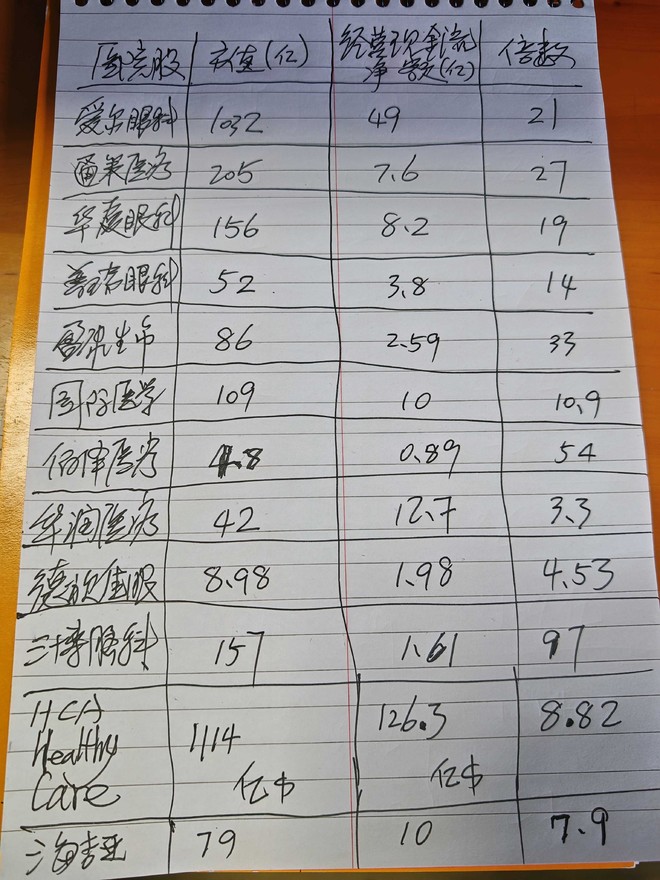 医疗股 市值(亿) 经营现金流净额(亿) 倍数
爱尔眼科 1032 49 21
通策医疗 205 7.6 27
华厦眼科 156 8.2 19
普瑞眼科 52 3.8 14
86 2.59 33
国际医学 109 10 10.9
何氏医疗 4.8 0.89 54
华润医疗 42 12.7 3.3
德视佳眼 8.98 1.98 4.53
三博脑科 157 1.61 97
HCA
Healthy
Care 1114 亿$ 126.3 亿$ 8.82
海吉亚 79 10 7.9